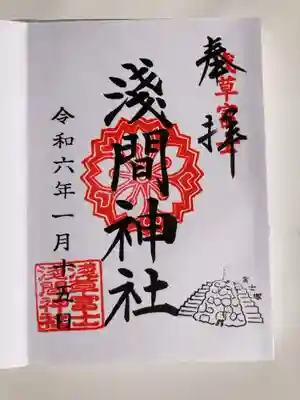 奉拝
淺間神社
令和六年一月十五日
淺草富士
淺間神社
富士塚